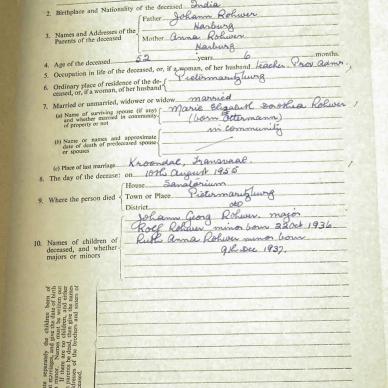 2. Birthplace and Nationality of the deceased India
Father Johann Rohwer
Harburg
3. Names and Addresses of the
Parents of the deceased
Mother Anna Rohwer
Harburg
4. Age of the deceased 52 years 6 months.
5. Occupation in life of the deceased, or, if a woman, of her husband Teacher Prov. Admr.,
6. Ordinary place of residence of the de-
ceased, or, if a woman, of her husband
Pietermaritzburg
7. Married or unmarried, widower or widow married
(a) Name of surviving spouse (if any)
and whether married in community
of property or not
Marie Elizabeth Dorothea Rohwer
(born Ottermann)
in community
(b) Name or names and approximate
date of death of predeceased spouse
or spouses
(c) Place of last marriage Kroondal, Transvaal
8. The day of the decease: on 10th August 1956
9. Where the person died
House Sanatorium
Town or Place Pietermaritzburg
District do
10. Names of children of
deceased, and whether
majors or minors
Johann Georg Rohwer, major
Rolf Rohwer minor born 22 Oct 1936
Ruth Anna Rohwer minor born
9th Dec 1937.